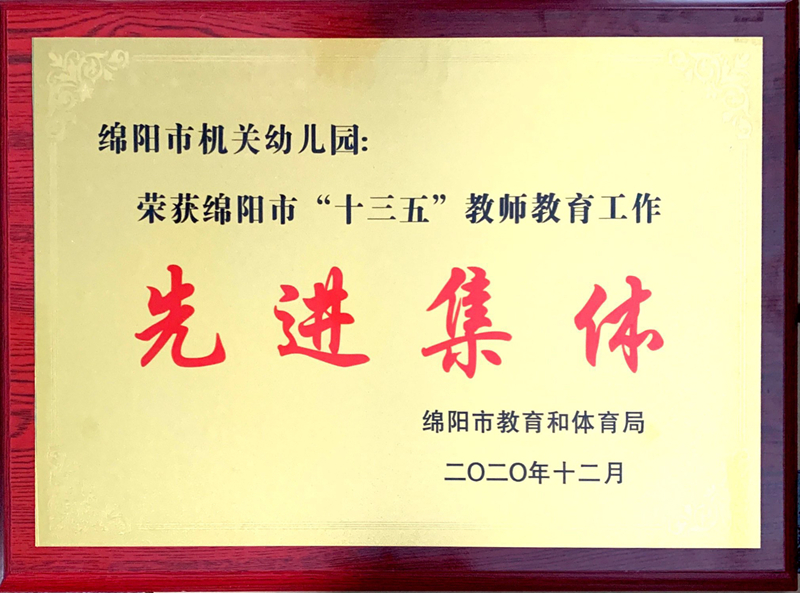 绵阳市机关幼儿园:
荣获绵阳市“十三五”教师教育工作
先进集体
绵阳市教育和体育局
二〇二〇年十二月